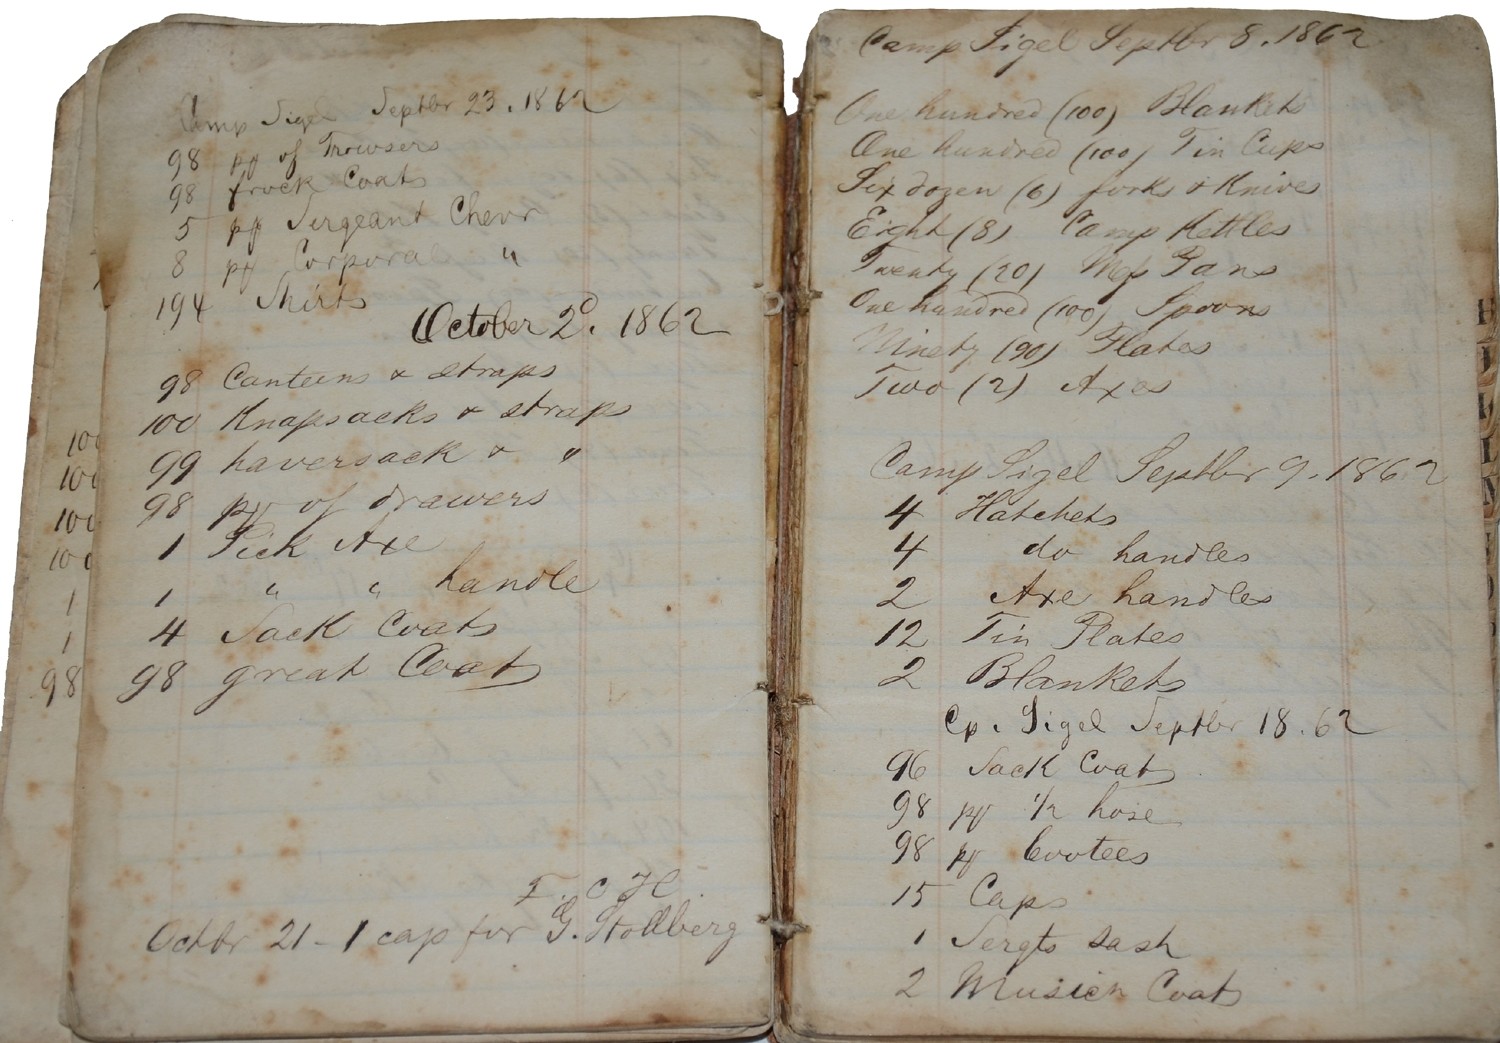 Camp Sigel Septbr 23. 1862
98 pr of Trowsers
98 frock Coats
5 pr Sergeant Chevr
8 pr Corporal "
194 Shirts
October 2d. 1862
98 Canteens & straps
100 Knapsacks & straps
99 haversack & "
98 pr of drawers
1 Pick Axe
1 " " handle
4 Sack Coats
98 great Coats
F. C. H.
Octbr 21 - 1 cap for G. Stollberg
100
100
100
100
1
1
98
Camp Sigel Septbr 8. 1862
One hundred (100) Blankets
One hundred (100) Tin Cups
Six dozen (6) forks & Knives
Eight (8) Camp Kettles
Twenty (20) Mess Pans
One hundred (100) Spoons
Ninety (90) Plates
Two (2) Axes
Camp Sigel Septbr 9. 1862
4 Hatchets
4 do handles
2 Axe handles
12 Tin Plates
2 Blankets
Cp. Sigel Septbr 18. 62
96 Sack Coats
98 pr 1/2 hose
98 pr bootees
15 Caps
1 Sergts Sash
2 Musicn Coats